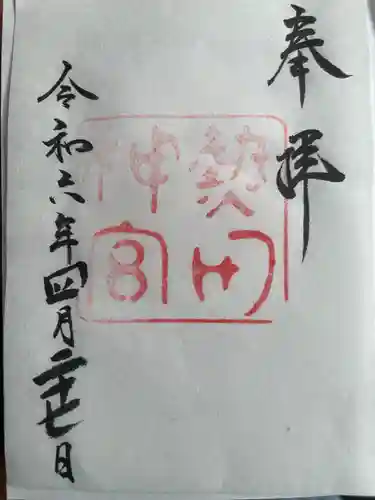 奉拝
熱田
神宮
令和六年四月二十七日